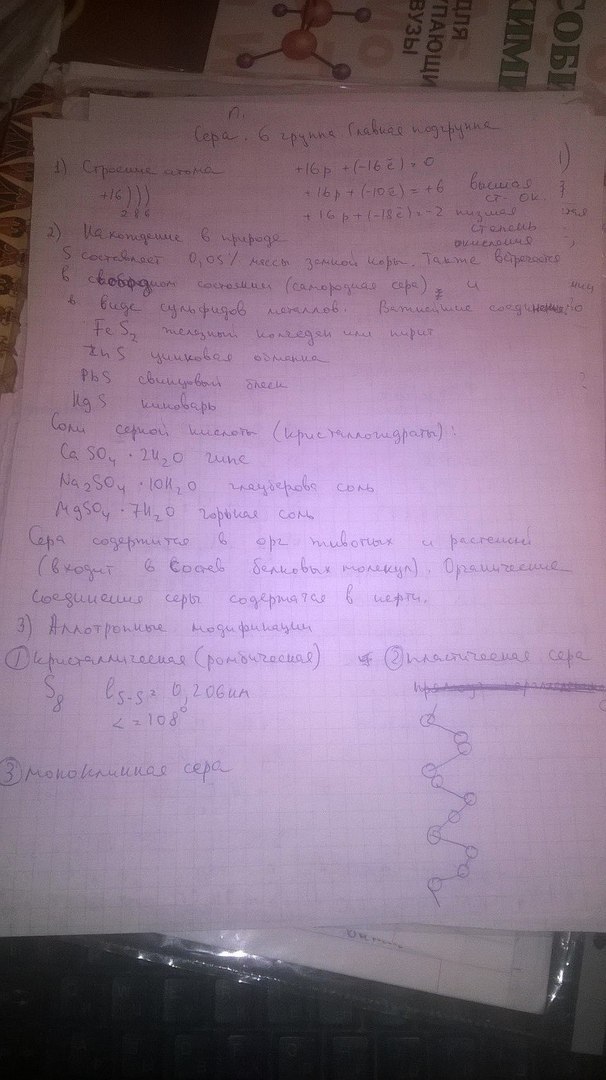 ДЛЯ
УПАЮЩИ
ВУЗЫ
ХИМИ
СОБИ
п.
Сера. 6 группа. Главная подгруппа
1) Строение атома
+16)))
2 8 6
+16p + (-16ē) = 0
+16p + (-10ē) = +6 высшая
ст. ок.
+16p + (-18ē) = -2 низшая
степень
окисления
2) Нахождение в природе
S составляет 0,05% массы земной коры. Также встречается
в свободном состоянии (самородная сера), и
в виде сульфидов металлов. Важнейшие соединения:
FeS2 железный колчедан или пирит
ZnS цинковая обманка
PbS свинцовый блеск
HgS киноварь
Соли серной кислоты (кристаллогидраты):
CaSO4 · 2H2O гипс
Na2SO4 · 10H2O глауберова соль
MgSO4 · 7H2O горькая соль
Сера содержится в орг животных и растений
(входит в состав белковых молекул). Органические
соединения серы содержатся в нефти.
3) Аллотропные модификации
① кристаллическая (ромбическая) ② пластическая сера
S8 lS-S = 0,206нм
∠ = 108°
③ моноклинная сера